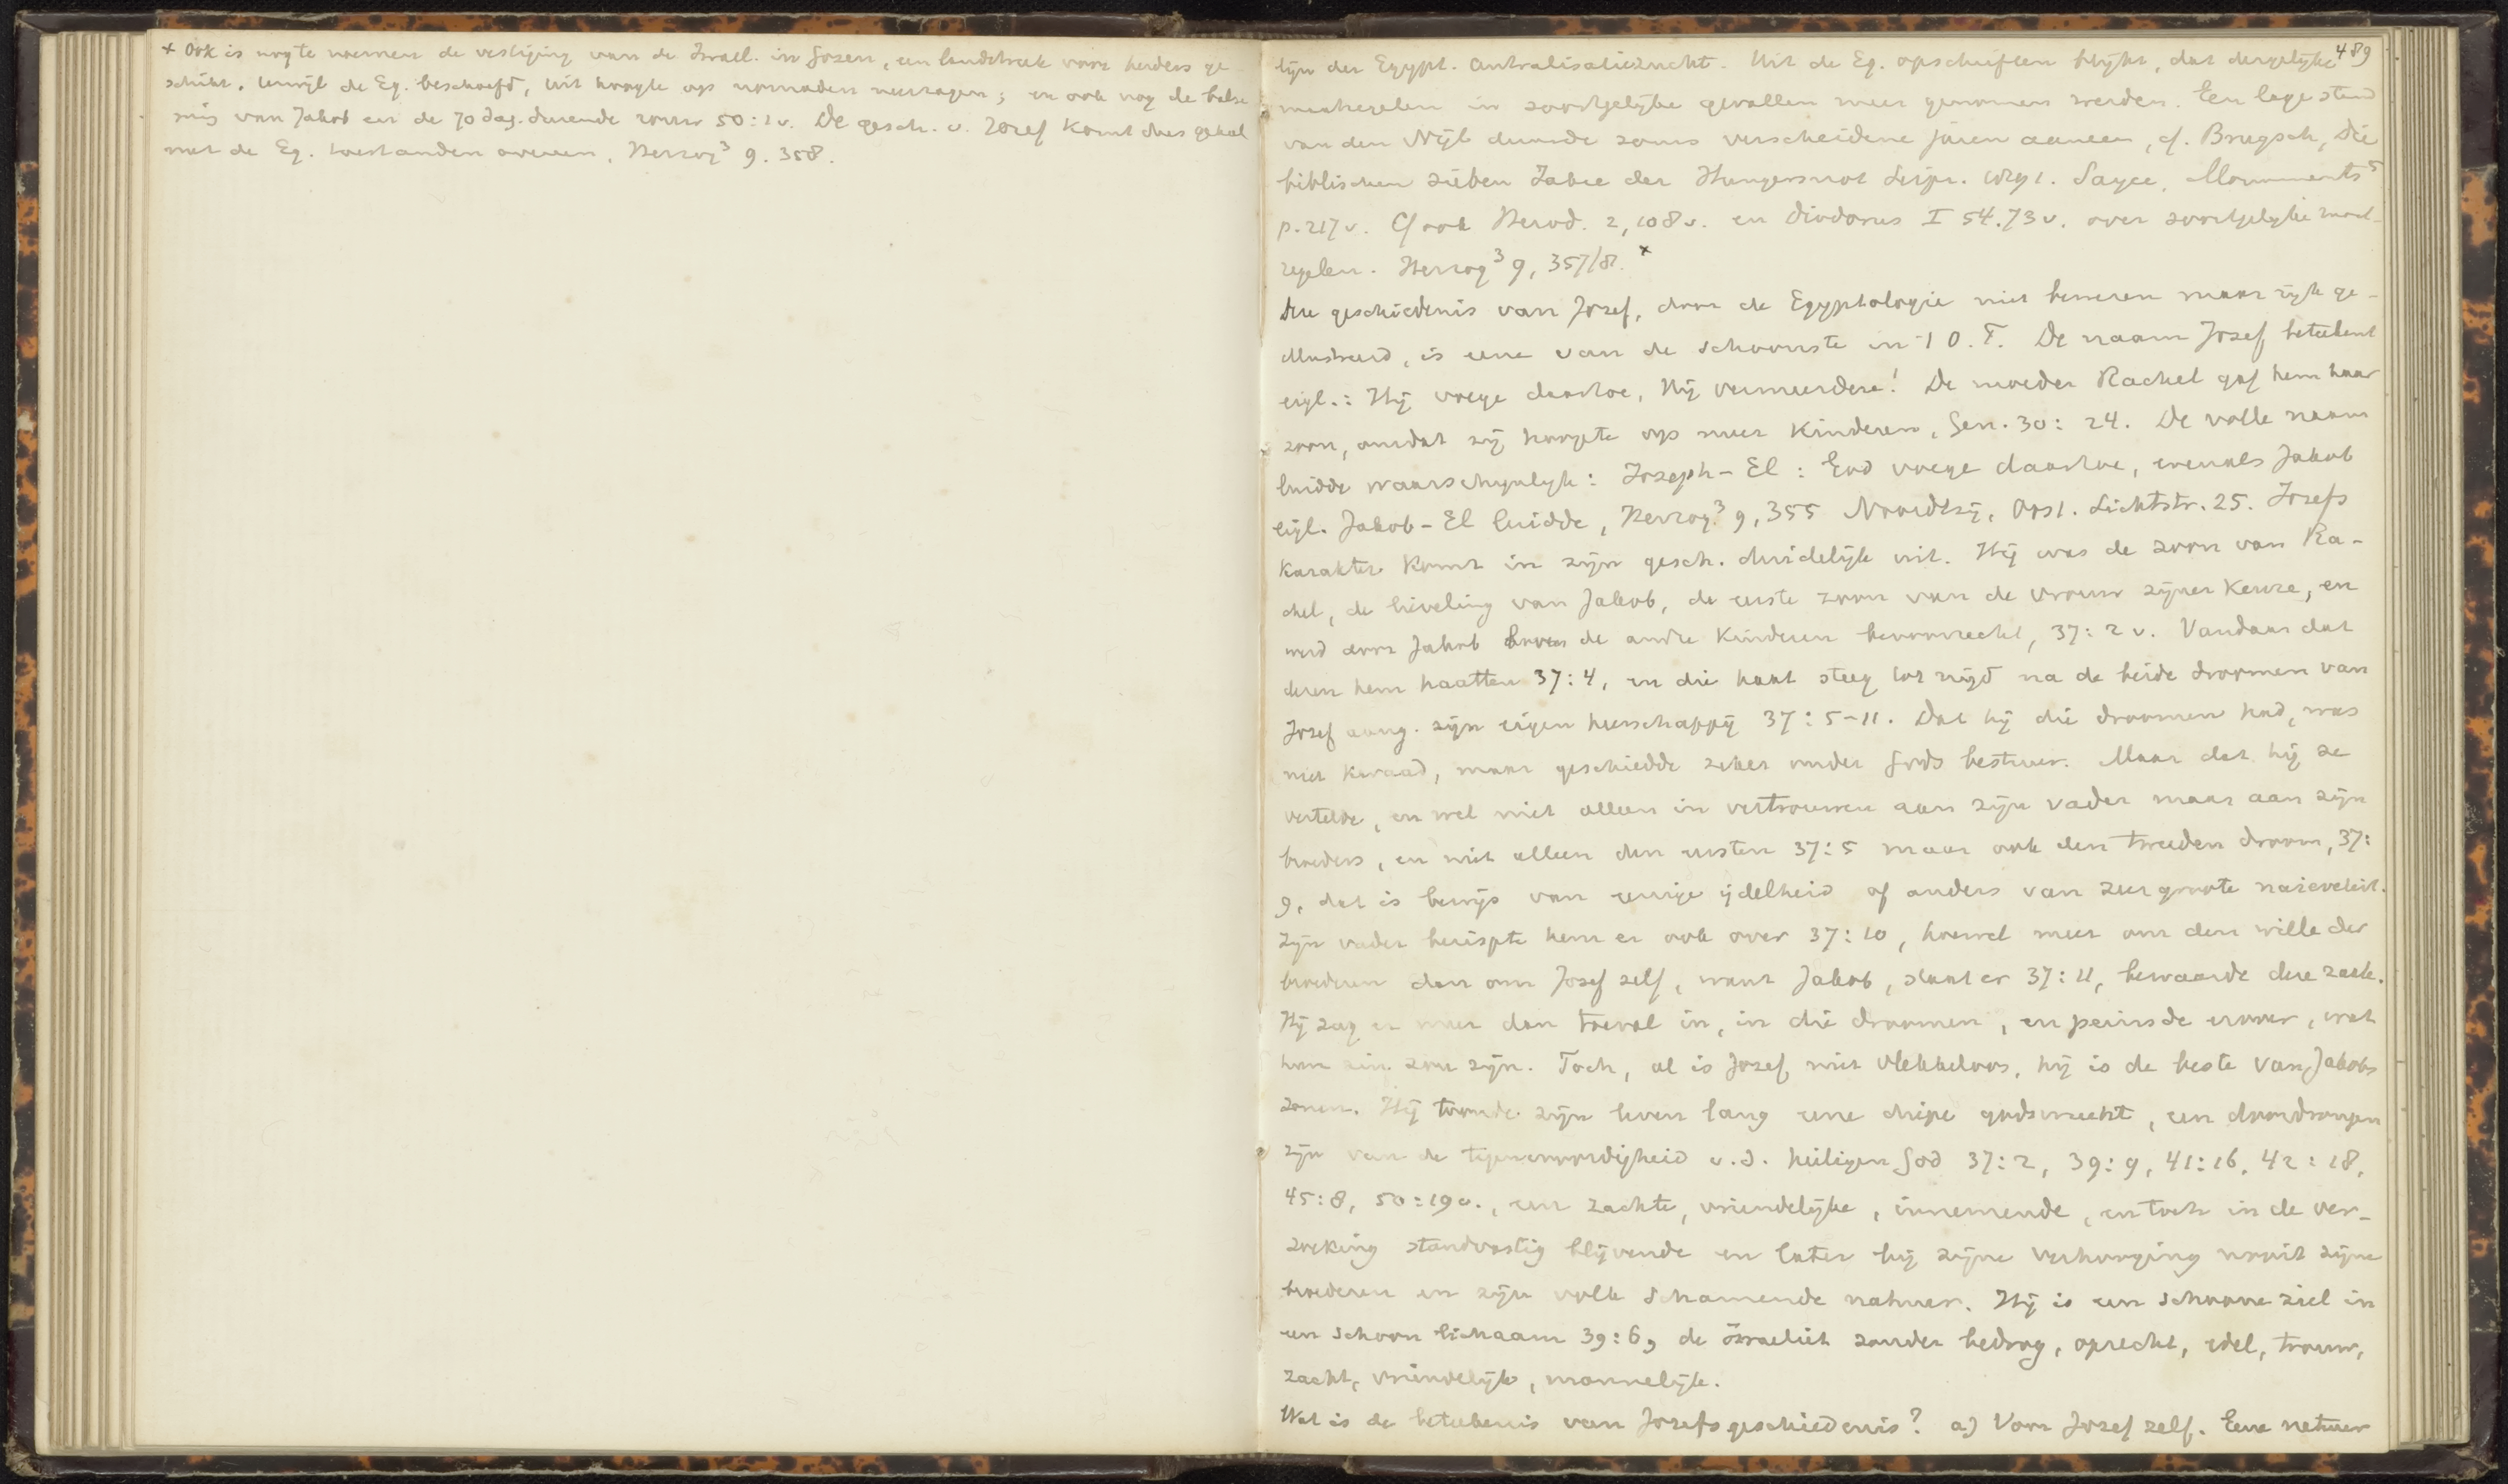 x Ook is nog te noemen de vestiging van de Israel. in Gosen, een landstreek voor herders ge-
schikt, terwijl de Eg. beschaafd, uit hoogte op nomaden neerzagen; en ook nog de balse
ming van Jakob en de 70 dag. durende rouw 50:1v. De gesch. v. Jozef komt dus geheel
met de Eg. toestanden overeen, Herzog³ 9. 358.
489
tijn der Egypt. Centralisatiezucht. Uit de Eg. opschriften blijkt, dat dergelijke
maatregelen in soortgelijke gevallen meer genomen werden. Een lage stand
van den Nijl duurde soms verscheidene jaren aaneen, cf. Brugsch, Die
biblischen sieben Jahre der Hungersnot Leipz. 1891. Sayce, Monuments⁵
p. 217 v. Cf ook Herod. 2, 108 v. en Diodorus I 54. 73 v. over soortgelijke maat-
regelen. Herzog³ 9, 357/8. x
Deze geschiedenis van Jozef, door de Egyptologie niet bewezen maar rijk ge-
illustreerd, is eene van de schoonste in 't O. T. De naam Jozef beteekent
eigl.: Hij voege daartoe, Hij vermeerdere! De moeder Rachel gaf hem haar
zoon, omdat zij hoopte op meer kinderen, Gen. 30: 24. De volle naam
luidde waarschijnlijk: Joseph-El: God voege daartoe, evenals Jakob
eigl. Jakob-El luidde, Herzog³ 9, 355 Noordtzij, Oost. Lichtstr. 25. Jozefs
karakter komt in zijn gesch. duidelijk uit. Hij was de zoon van Ra-
chel, de lieveling van Jakob, de eerste zoon van de vrouw zijner keuze, en
werd door Jakob boven de andre kinderen bevoorrecht, 37: 2 v. Vandaar dat
dezen hem haatten 37: 4, en die haat steeg tot nijd na de beide droomen van
Jozef aang. zijn eigen heerschappij 37: 5-11. Dat hij die droomen had, was
niet kwaad, maar geschiedde zeker onder Gods bestuur. Maar dat hij ze
vertelde, en wel niet alleen in vertrouwen aan zijn vader maar aan zijn
broeders, en niet alleen den eersten 37: 5 maar ook den tweeden droom, 37:
9, dat is bewijs van eenige ijdelheid of anders van zeer groote naieveteit.
Zijn vader berispte hem er ook over 37: 10, hoewel meer om den wille der
broederen dan om Jozef zelf, want Jakob, staat er 37: 11, bewaarde deze zaak.
Hij zag er meer dan toeval in, in die droomen, en peinsde erover, wat
hun zin zou zijn. Toch, al is Jozef niet vlekkeloos, hij is de beste van Jakobs
zonen. Hij toonde zijn leven lang eene diepe godsvrucht, een doordrongen
zijn van de tegenwoordigheid v. d. heiligen God 37: 2, 39: 9, 41: 16, 42: 18,
45: 8, 50: 19 v., een zachte, vriendelijke, innemende, en toch in de ver-
zoeking standvastig blijvende en later bij zijne verhooging nooit zijne
broederen en zijn volk schamende natuur. Hij is een schoone ziel in
een schoon lichaam 39: 6, de israeliet zonder bedrog, oprecht, edel, trouw,
zacht, vriendelijk, mannelijk.
Wat is de beteekenis van Jozefs geschiedenis? a) Voor Jozef zelf. Eene natuur